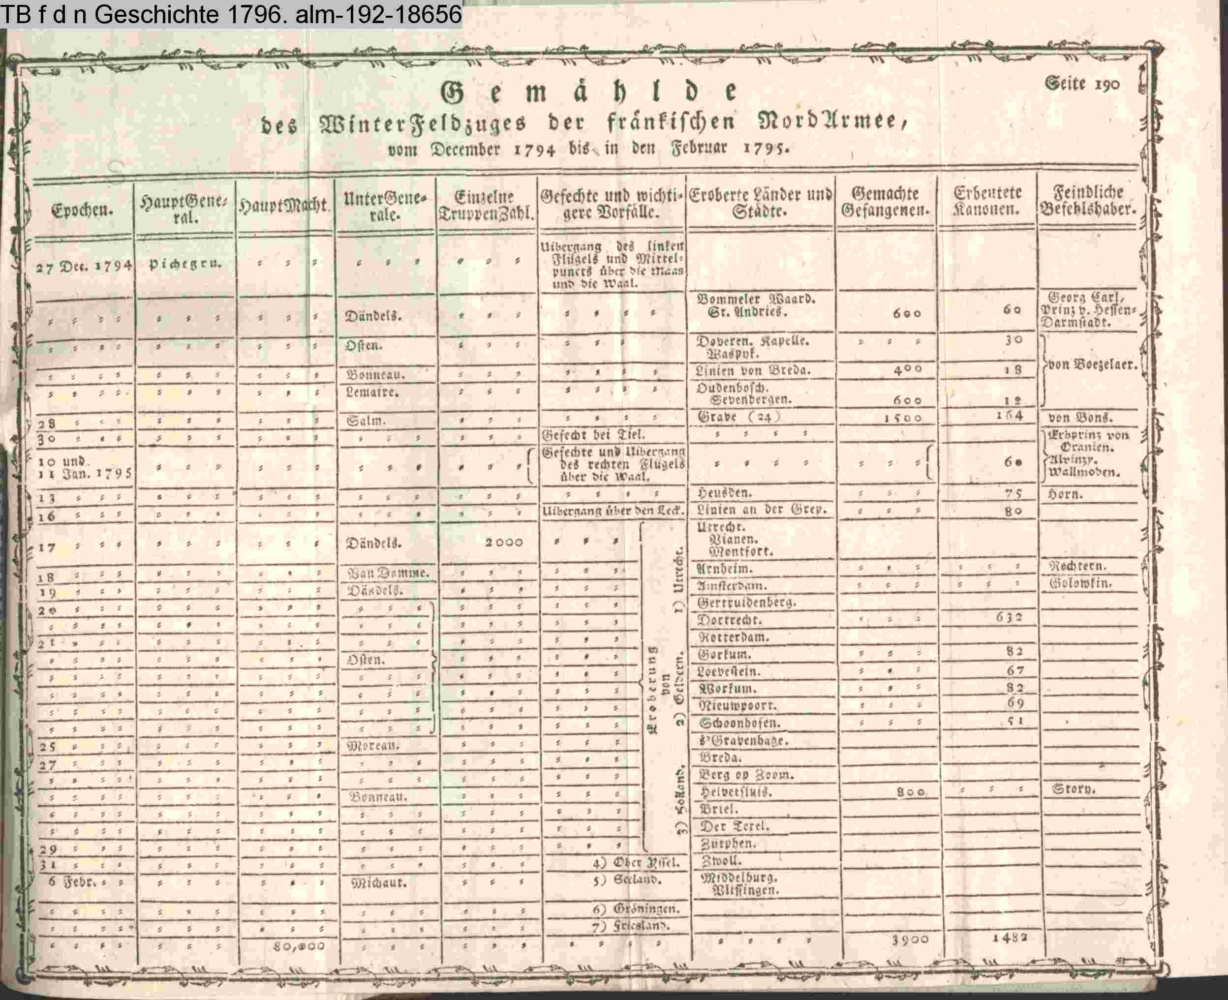 TB f d n Geschichte 1796. alm-192-18656
Seite 190
Gemählde
des WinterFeldzuges der fränkischen NordArmee,
vom December 1794 bis in den Februar 1795.
Epochen. HauptGeneral. HauptMacht. UnterGenerale. Einzelne TruppenZahl. Gefechte und wichtigere Vorfälle. Eroberte Länder und Städte. Gemachte Gefangenen. Erbeutete Kanonen. Feindliche Befehlshaber.
27 Dec. 1794 Pichegru. Uibergang des linken
Flügels und Mittel-
puncts über die Maas
und die Waal.
Dändels. Bommeler Waard. 600 60 Georg Carl,
St. Andries. Prinz v. Hessen-
Darmstadt.
Osten. Doveren. Kapelle. 30
Waspyk.
von Boezelaer.
Bonneau. Linien von Breda. 400 18
Lemaire. Oudenbosch.
Sevenbergen. 600 12
28 Salm. Grave (24) 1500 164 von Bons.
30 Gefecht bei Tiel.
10 und Gefechte und Uibergang 60 Erbprinz von
11 Jan. 1795 des rechten Flügels Oranien.
über die Waal. Alvinzy.
Wallmoden.
13 Heusden. 75 Horn.
16 Uibergang über den Leck. Linien an der Grep. 80
17 Dändels. 2000 Utrecht.
Vianen.
Montfort.
Eroberung von
1) Utrecht.
2) Geldern.
3) Holland.
18 Van Damme. Arnheim. Rechtern.
19 Dändels. Amsterdam. Golowkin.
20 Gertruidenberg.
Dortrecht. 632
21 Rotterdam.
Osten. Gorkum. 82
Loevestein. 67
Workum. 82
Nieuwpoort. 69
Schoonhofen. 51
25 Moreau. s'Gravenhage.
27 Breda.
Berg op Zoom.
Bonneau. Helvetsluis. 800 Story.
Briel.
Der Texel.
29 Zütphen.
31 4) Ober Yssel. Zwoll.
6 Febr. Michaut. 5) Seeland. Middelburg.
Vlissingen.
6) Gröningen.
7) Friesland.
80,000 3900 1482